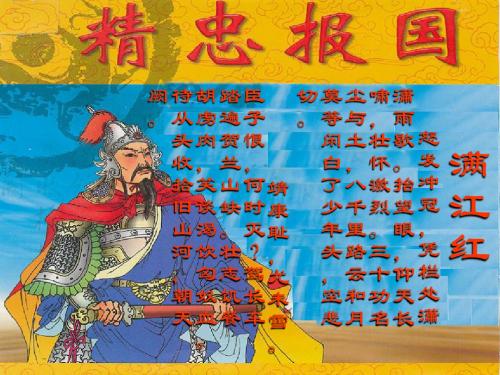 精忠报国
满江红
怒发冲冠，凭栏处潇
潇雨歇。抬望眼，仰天长
啸，壮怀激烈。三十功名
尘与土，八千里路云和月
莫等闲白了少年头，空悲
切。
靖康耻，尤未雪。
臣子恨，何时灭？驾长车
踏遍贺兰山缺 壮志饥餐
胡虏肉，笑谈渴饮匈奴血
待从头收拾旧山河 朝天
阙。